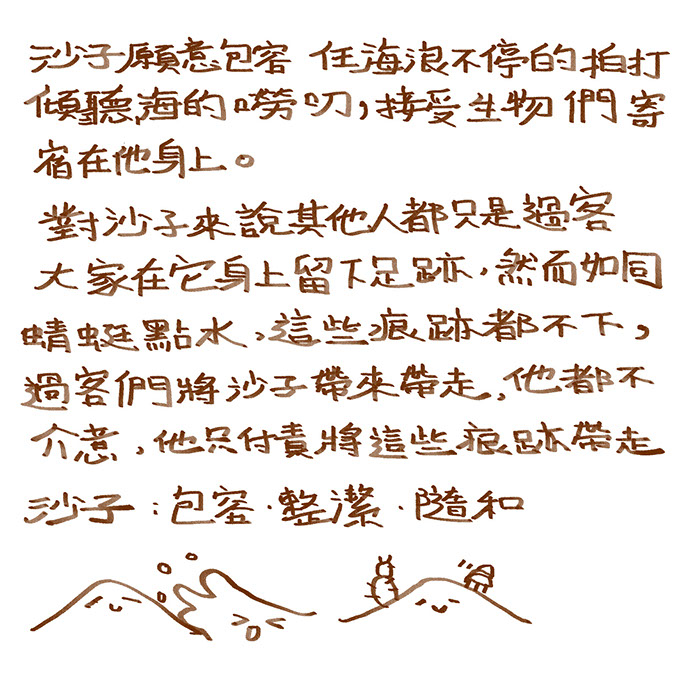 沙子願意包容 任海浪不停的拍打
傾聽海的嘮叨，接受生物們寄
宿在他身上。
對沙子來說其他人都只是過客
大家在它身上留下足跡，然而如同
蜻蜓點水，這些痕跡都不下，
過客們將沙子帶來帶走，他都不
介意，他只付責將這些痕跡帶走
沙子：包容．整潔．隨和